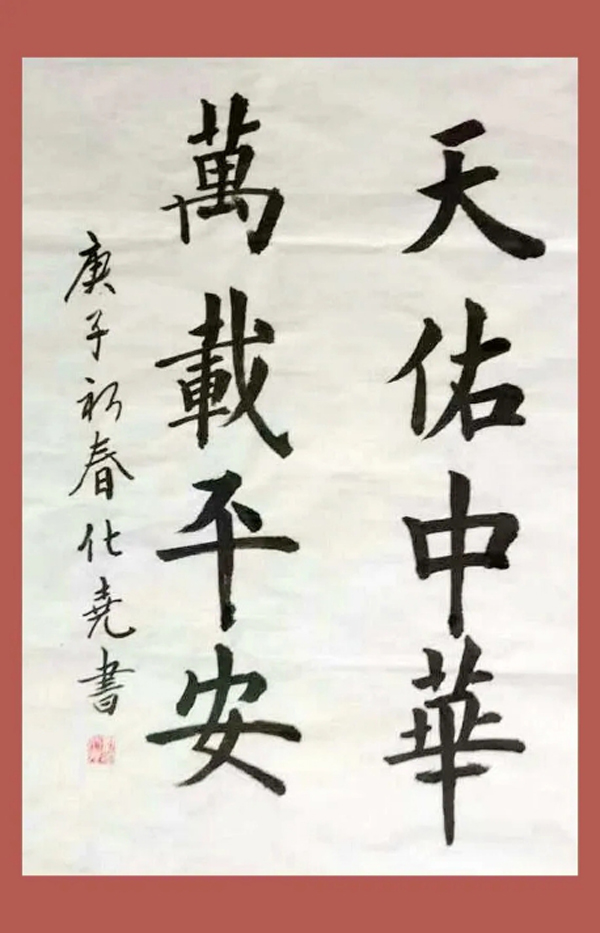 天佑中華
萬載平安
庚子初春化堯書